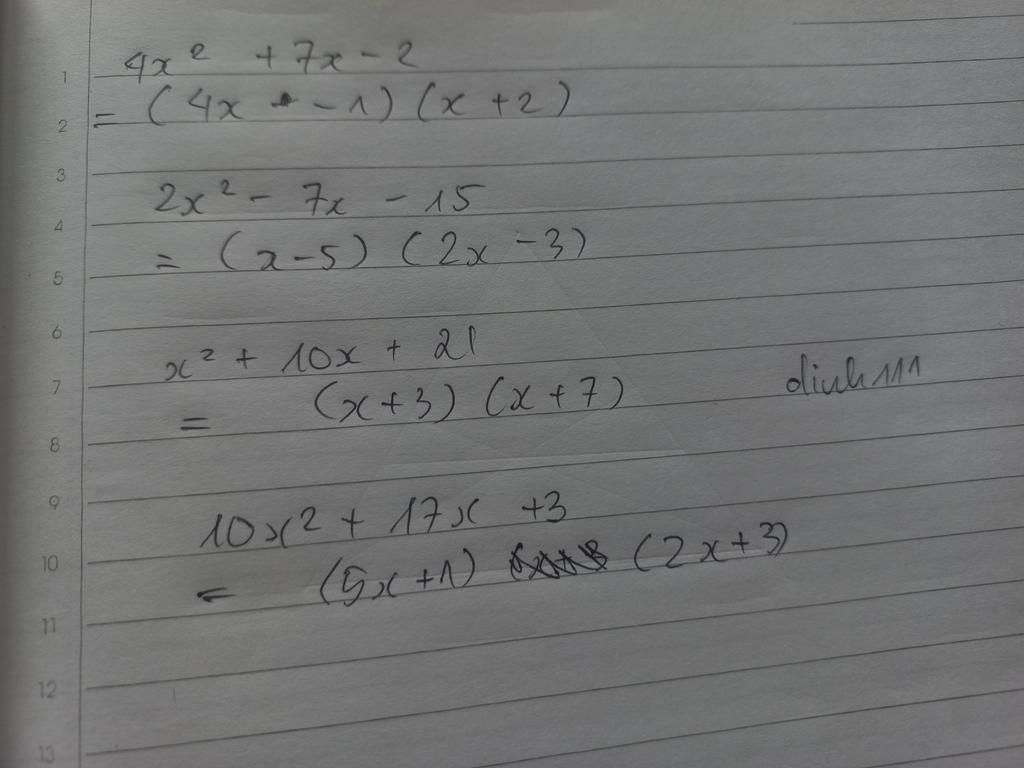 1
4x² + 7x - 2
2
= (4x - 1) (x + 2)
3
2x² - 7x - 15
4
= (x - 5) (2x - 3)
5
6
x² + 10x + 21
7
= (x + 3) (x + 7) diuh111
8
9
10x² + 17x + 3
10
= (5x + 1) (2x + 3)
11
12
13